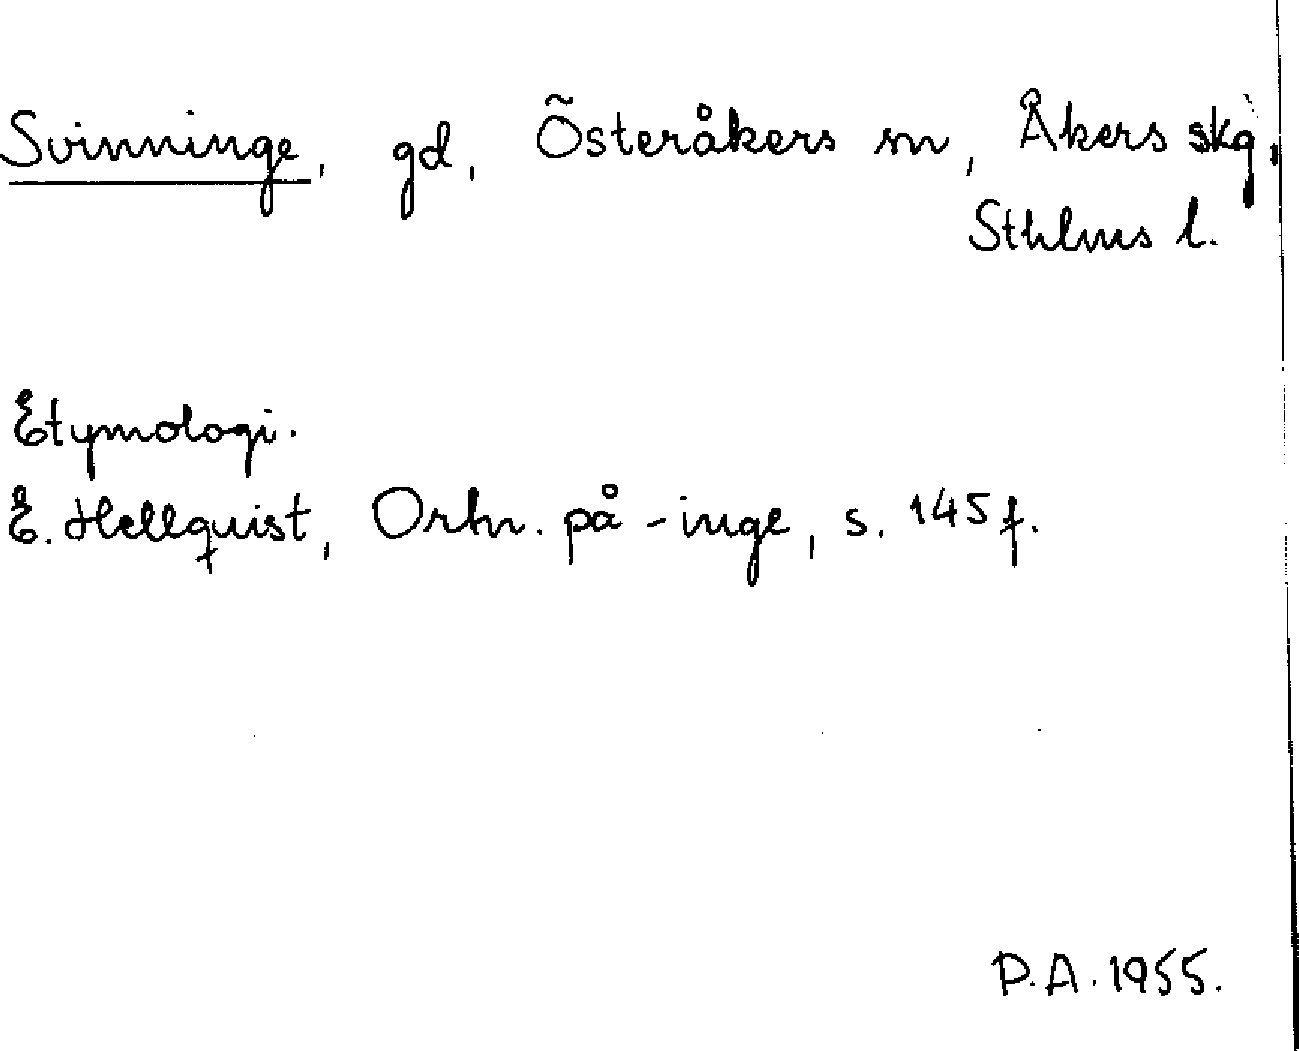 Svinninge, gd, Österåkers sn, Åkers skg,
Sthlms l.
Etymologi.
E. Hellquist, Ortn. på -inge, s. 145 f.
P.A. 1955.